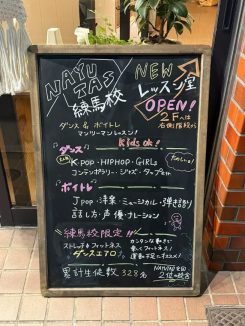 NAYUTAS
練馬校
NEW
レッスン室
OPEN!
2Fへは
右側階段から
ダンス&ボイトレ
マンツーマンレッスン!
Kids ok!
ダンス
K-POP・HIPHOP・GIRLS
コンテンポラリー・ジャズ・タップetc
ボイトレ
Jpop・洋楽・ミュージカル・弾き語り
話し方・声優・ナレーション
練馬校限定!!
ストレッチ&フィットネス
ダンスエアロ
カンタンな動きで
楽しくフィットネス!
運動不足にオススメ!
累計生徒数 328名
NAYUTAS全国
2位の校舎